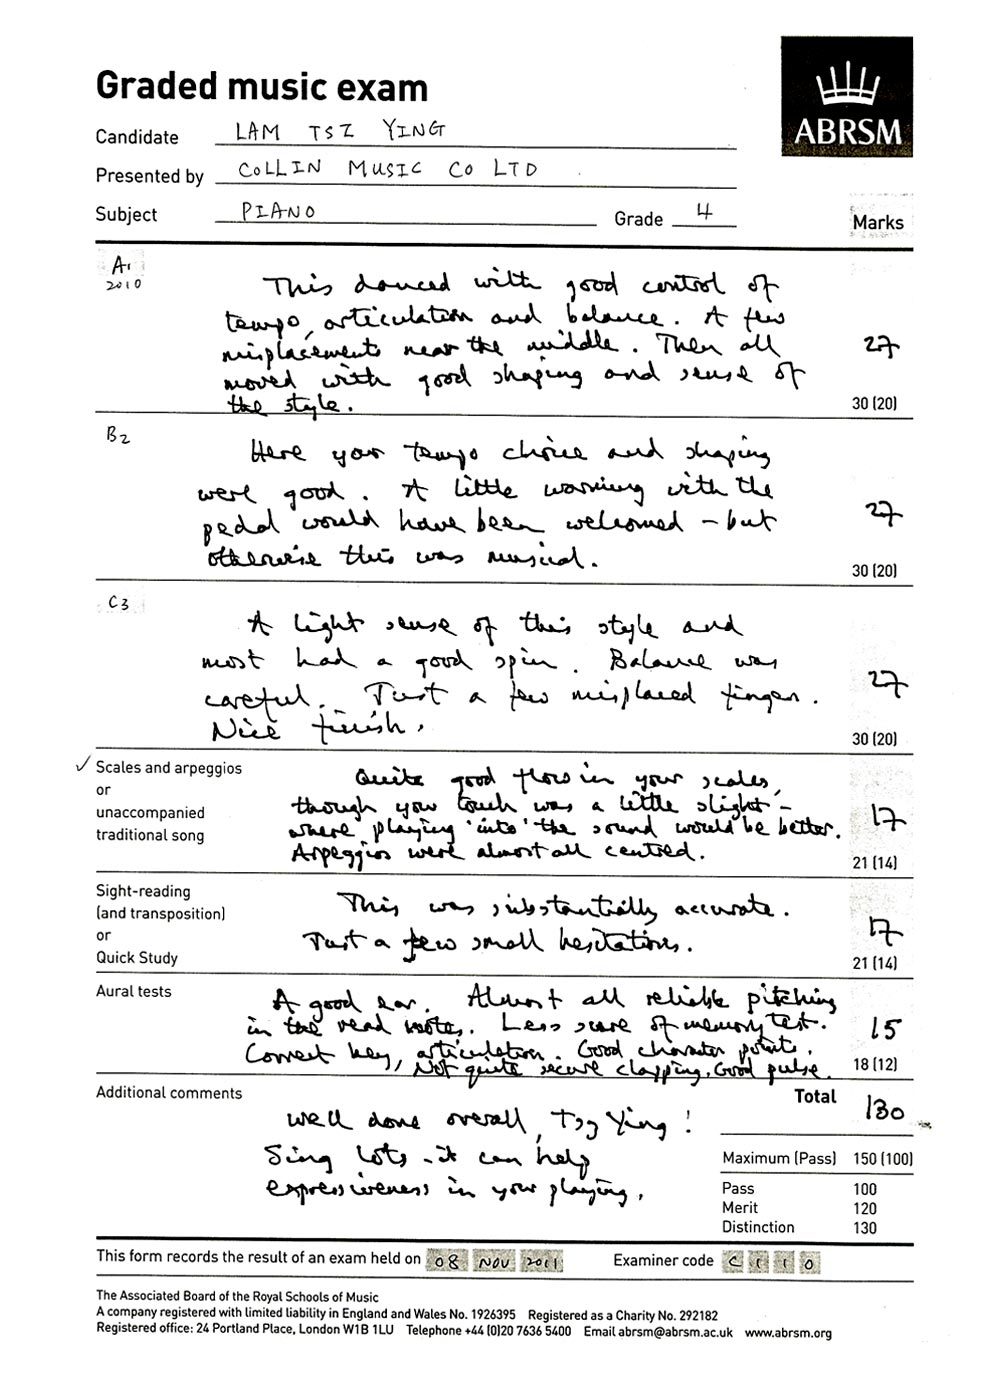 Graded music exam
ABRSM
Candidate LAM TSZ YING
Presented by COLLIN MUSIC CO LTD
Subject PIANO Grade 4
Marks
A1
2010
This danced with good control of
tempo, articulation and balance. A few
misplacements near the middle. Then all
moved with good shaping and sense of
the style.
27
30 (20)
B2
Here your tempo choice and shaping
were good. A little warming with the
pedal would have been welcomed - but
otherwise this was musical.
27
30 (20)
C3
A light sense of this style and
most had a good spin. Balance was
careful. Just a few misplaced fingers.
Nice finish.
27
30 (20)
✓ Scales and arpeggios
or
unaccompanied
traditional song
Quite good flow in your scales,
though your touch was a little slight -
where playing 'into' the sound would be better.
Arpeggios were almost all centred.
17
21 (14)
Sight-reading
(and transposition)
or
Quick Study
This was substantially accurate.
Just a few small hesitations.
17
21 (14)
Aural tests
A good ear. Almost all reliable pitching
in the read notes. Less sure of memory test.
Correct key, articulation. Good character points.
Not quite secure clapping. Good pulse.
15
18 (12)
Additional comments
Well done overall, Tsz Ying!
Sing lots - it can help
expressiveness in your playing.
Total 130
Maximum (Pass) 150 (100)
Pass 100
Merit 120
Distinction 130
This form records the result of an exam held on 08 NOV 2011 Examiner code C110
The Associated Board of the Royal Schools of Music
A company registered with limited liability in England and Wales No. 1926395 Registered as a Charity No. 292182
Registered office: 24 Portland Place, London W1B 1LU Telephone +44 (0)20 7636 5400 Email abrsm@abrsm.ac.uk www.abrsm.org